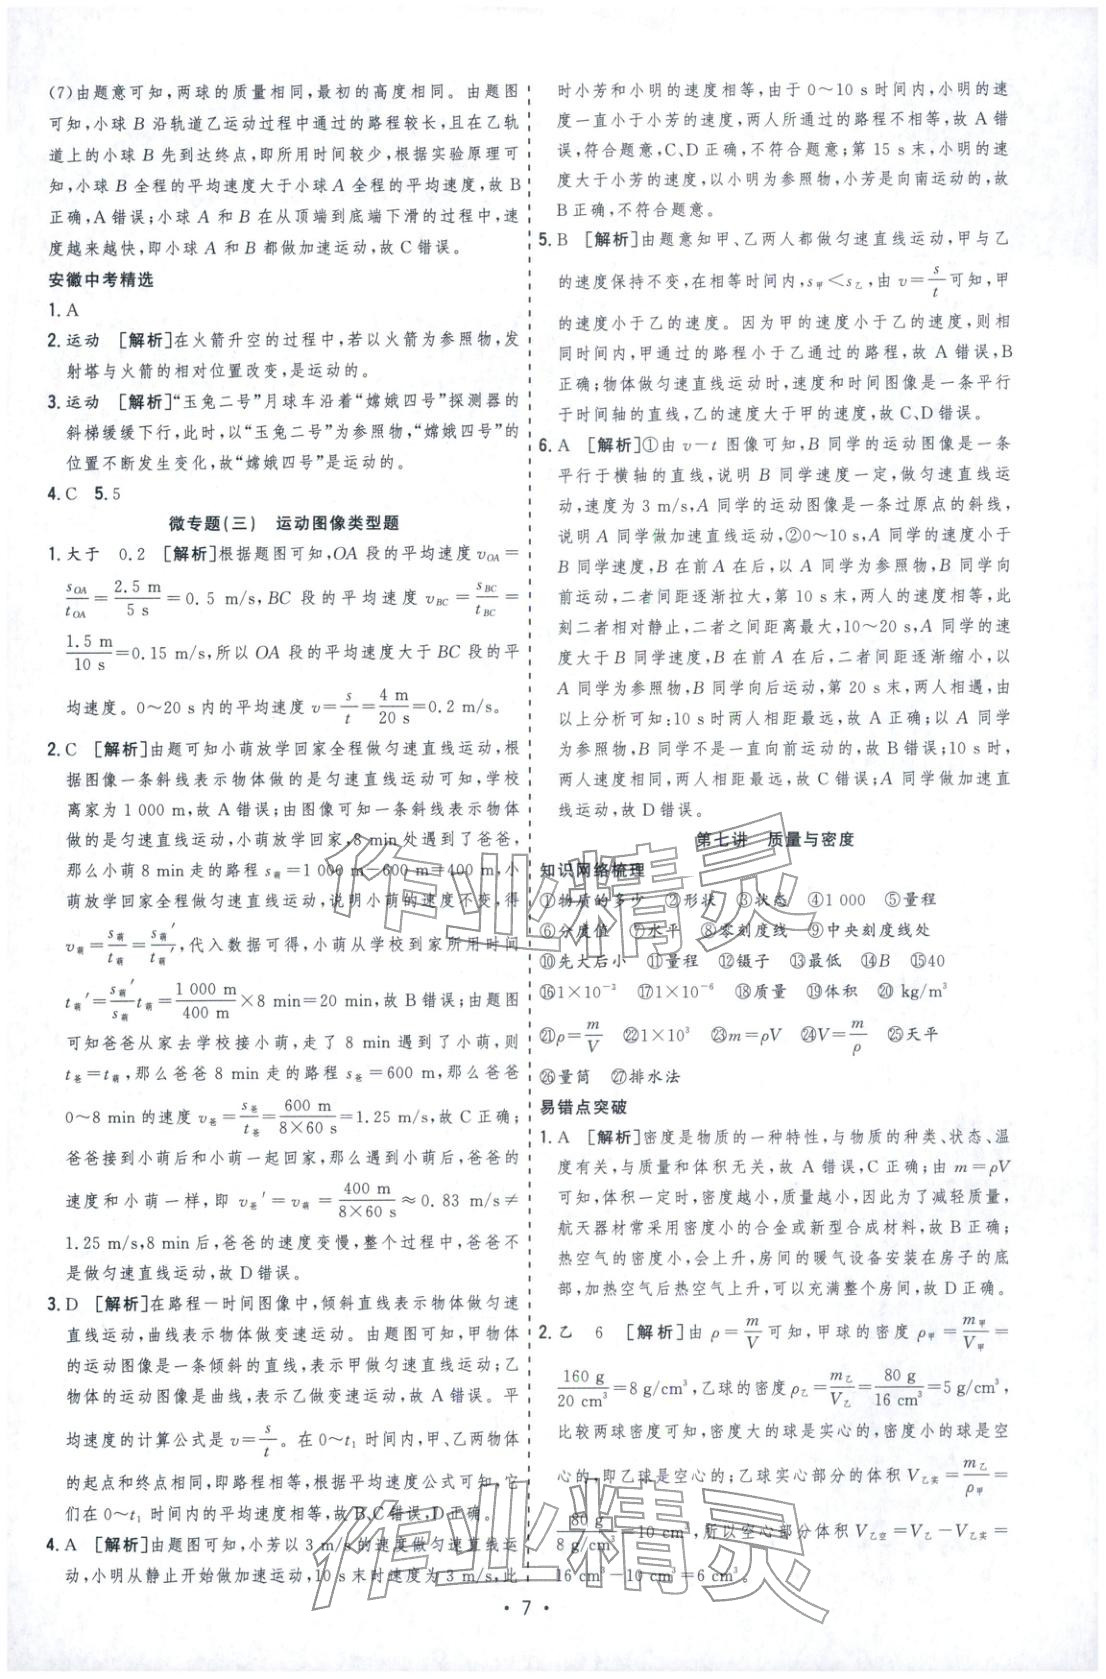 (7)由题意可知,两球的质量相同,最初的高度相同。由题图
可知,小球 B 沿轨道乙运动过程中通过的路程较长,且在乙轨
道上的小球 B 先到达终点,即所用时间较少,根据实验原理可
知,小球 B 全程的平均速度大于小球 A 全程的平均速度,故 B
正确,A 错误;小球 A 和 B 在从顶端到底端下滑的过程中,速
度越来越快,即小球 A 和 B 都做加速运动,故 C 错误。
安徽中考精选
1. A
2. 运动 [解析]在火箭升空的过程中,若以火箭为参照物,发
射塔与火箭的相对位置改变,是运动的。
3. 运动 [解析]“玉兔二号”月球车沿着“嫦娥四号”探测器的
斜梯缓缓下行,此时,以“玉兔二号”为参照物,“嫦娥四号”的
位置不断发生变化,故“嫦娥四号”是运动的。
4. C 5. 5
微专题(三) 运动图像类型题
1. 大于 0.2 [解析]根据题图可知,OA 段的平均速度 v_OA =
s_OA/t_OA = 2.5 m/5 s = 0.5 m/s,BC 段的平均速度 v_BC = s_BC/t_BC =
1.5 m/10 s = 0.15 m/s,所以 OA 段的平均速度大于 BC 段的平
均速度。0～20 s 内的平均速度 v = s/t = 4 m/20 s = 0.2 m/s。
2. C [解析]由题可知小萌放学回家全程做匀速直线运动,根
据图像一条斜线表示物体做的是匀速直线运动可知,学校
离家为 1 000 m,故 A 错误;由图像可知一条斜线表示物体
做的是匀速直线运动,小萌放学回家,8 min 处遇到了爸爸,
那么小萌 8 min 走的路程 s萌 = 1 000 m－600 m = 400 m,小
萌放学回家全程做匀速直线运动,说明小萌的速度不变,得
v萌 = s萌/t萌 = s萌′/t萌′,代入数据可得,小萌从学校到家所用时间
t萌′ = s萌′/s萌 t萌 = 1 000 m/400 m × 8 min = 20 min,故 B 错误;由题图
可知爸爸从家去学校接小萌,走了 8 min 遇到了小萌,则
t爸 = t萌,那么爸爸 8 min 走的路程 s爸 = 600 m,那么爸爸
0～8 min 的速度 v爸 = s爸/t爸 = 600 m/8×60 s = 1.25 m/s,故 C 正确;
爸爸接到小萌后和小萌一起回家,那么遇到小萌后,爸爸的
速度和小萌一样,即 v爸′ = v萌 = 400 m/8×60 s ≈ 0.83 m/s ≠
1.25 m/s,8 min 后,爸爸的速度变慢,整个过程中,爸爸不
是做匀速直线运动,故 D 错误。
3. D [解析]在路程－时间图像中,倾斜直线表示物体做匀速
直线运动,曲线表示物体做变速运动。由题图可知,甲物体
的运动图像是一条倾斜的直线,表示甲做匀速直线运动;乙
物体的运动图像是曲线,表示乙做变速运动,故 A 错误。平
均速度的计算公式是 v = s/t。在 0～t₁ 时间内,甲、乙两物体
的起点和终点相同,即路程相等,根据平均速度公式可知,它
们在 0～t₁ 时间内的平均速度相等,故 B、C 错误,D 正确。
4. A [解析]由题图可知,小芳以 3 m/s 的速度做匀速直线运
动,小明从静止开始做加速运动,10 s 末时速度为 3 m/s,此
时小芳和小明的速度相等,由于 0～10 s 时间内,小明的速
度一直小于小芳的速度,两人所通过的路程不相等,故 A 错
误,符合题意,C、D 正确,不符合题意;第 15 s 末,小明的速
度大于小芳的速度,以小明为参照物,小芳是向南运动的,故
B 正确,不符合题意。
5. B [解析]由题意知甲、乙两人都做匀速直线运动,甲与乙
的速度保持不变,在相等时间内,s甲＜s乙,由 v = s/t 可知,甲
的速度小于乙的速度。因为甲的速度小于乙的速度,则相
同时间内,甲通过的路程小于乙通过的路程,故 A 错误,B
正确;物体做匀速直线运动时,速度和时间图像是一条平行
于时间轴的直线,乙的速度大于甲的速度,故 C、D 错误。
6. A [解析]①由 v－t 图像可知,B 同学的运动图像是一条
平行于横轴的直线,说明 B 同学速度一定,做匀速直线运
动,速度为 3 m/s,A 同学的运动图像是一条过原点的斜线,
说明 A 同学做加速直线运动,②0～10 s,A 同学的速度小于
B 同学速度,B 在前 A 在后,以 A 同学为参照物,B 同学向
前运动,二者间距逐渐拉大,第 10 s 末,两人的速度相等,此
刻二者相对静止,二者之间距离最大,10～20 s,A 同学的速
度大于 B 同学速度,B 在前 A 在后,二者间距逐渐缩小,以
A 同学为参照物,B 同学向后运动,第 20 s 末,两人相遇,由
以上分析可知:10 s时两人相距最远,故 A 正确;以 A 同学
为参照物,B 同学不是一直向前运动的,故 B 错误;10 s时,
两人速度相同,两人相距最远,故 C 错误;A 同学做加速直
线运动,故 D 错误。
第七讲 质量与密度
知识网络梳理
①物质的多少 ②形状 ③状态 ④1 000 ⑤量程
⑥分度值 ⑦水平 ⑧零刻度线 ⑨中央刻度线处
⑩先大后小 ⑪量程 ⑫镊子 ⑬最低 ⑭B ⑮40
⑯1×10⁻³ ⑰1×10⁻⁶ ⑱质量 ⑲体积 ⑳kg/m³
㉑ρ = m/V ㉒1×10³ ㉓m = ρV ㉔V = m/ρ ㉕天平
㉖量筒 ㉗排水法
易错点突破
1. A [解析]密度是物质的一种特性,与物质的种类、状态、温
度有关,与质量和体积无关,故 A 错误,C 正确;由 m = ρV
可知,体积一定时,密度越小,质量越小,因此为了减轻质量,
航天器材常采用密度小的合金或新型合成材料,故 B 正确;
热空气的密度小,会上升,房间的暖气设备安装在房子的底
部,加热空气后热空气上升,可以充满整个房间,故 D 正确。
2. 乙 6 [解析]由 ρ = m/V 可知,甲球的密度 ρ甲 = m甲/V甲 =
160 g/20 cm³ = 8 g/cm³,乙球的密度 ρ乙 = m乙/V乙 = 80 g/16 cm³ = 5 g/cm³,
比较两球密度可知,密度大的球是实心的,密度小的球是空
心的,即乙球是空心的;乙球实心部分的体积 V乙实 = m乙/ρ甲 =
80 g/8 g/cm³ = 10 cm³,所以空心部分体积 V乙空 = V乙－V乙实 =
16 cm³－10 cm³ = 6 cm³。
• 7 •
作业精灵
作业精灵